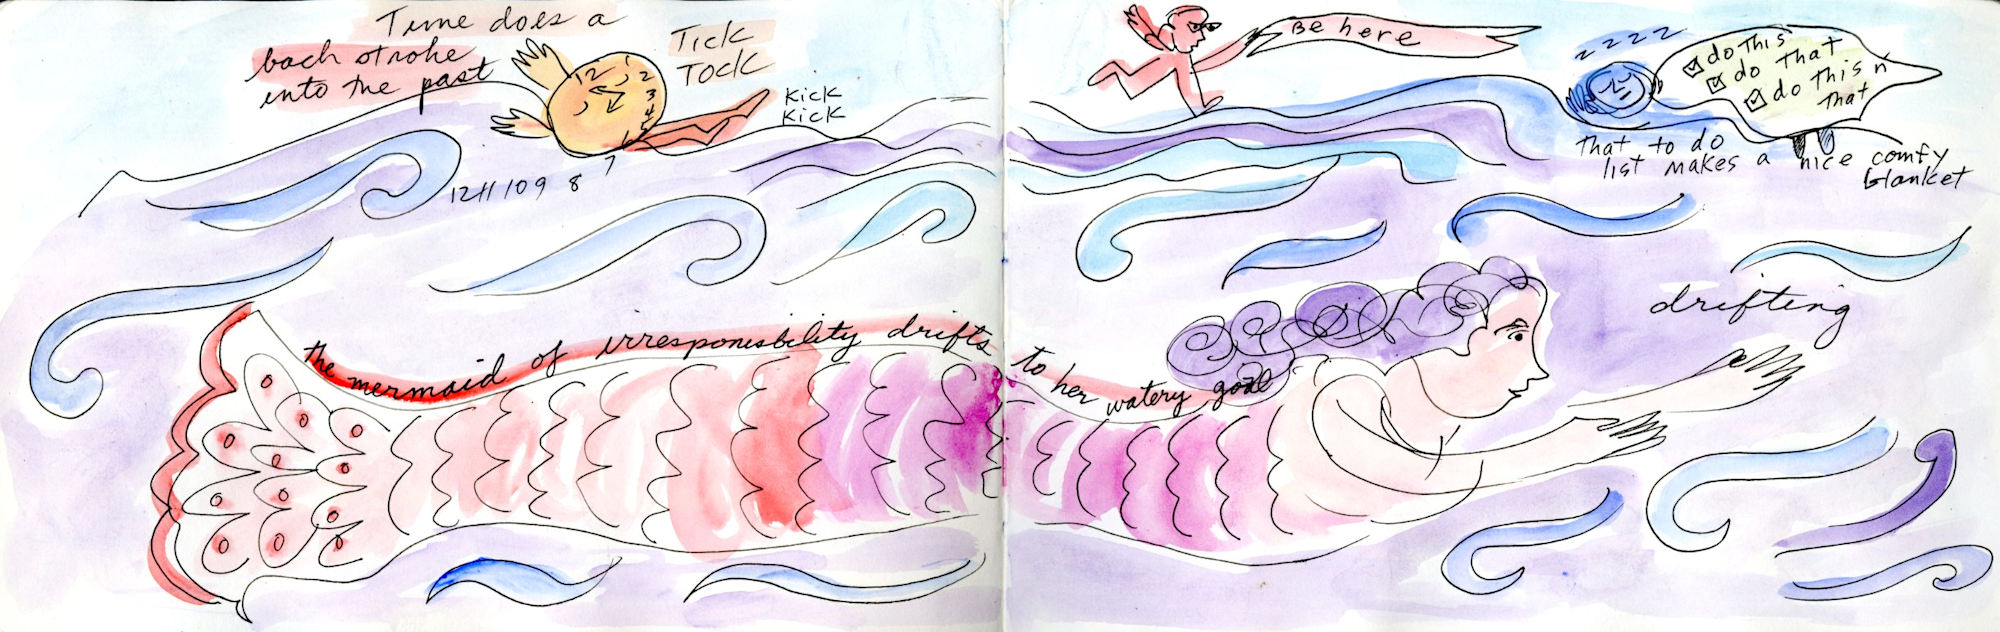 Time does a
back stroke
into the past
Tick
Tock
Kick
Kick
12 2
3
4
12 11 10 9 8 7
the mermaid of irresponisbility drifts to her watery goal
Be here
z z z z
do this
do that
do this n
that
That to do
list makes a nice comfy
blanket
drifting